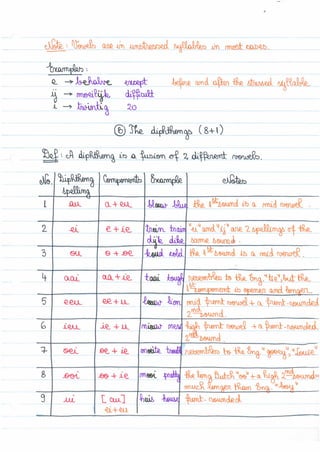 Note: Vowels are in unstressed syllables in most cases.
Examples:
e → behalve except before and after the stressed syllable.
ij → moeilijk difficult
i → twintig 20
ⓑ The diphthongs (8+1)
Def: A diphthong is a fusion of 2 different vowels.
No. Diphthong spelling Components Example Notes
1 au a + eu blauw blue the 1st sound is a mid vowel.
2 ei e + ie trein train "ei" and "ij" are 2 spellings of the
dijk dike same sound.
3 ou o + oe koud cold the 1st sound is a mid vowel.
4 aai aa + ie taai tough resembles to the Eng. "tie", but the
1st component is opener and longer.
5 eeu ee + u leeuw lion mid front vowel + a front-rounded
2nd sound.
6 ieu ie + u nieuw new high front vowel + a front-rounded
2nd sound.
7 oei oe + ie resembles to the Eng. "gooey", "Louie"
8 ooi oo + ie mooi pretty the long Dutch "oo" + a high 2nd sound
much longer than Eng. "boy"
9 ui [au] huis house front-rounded